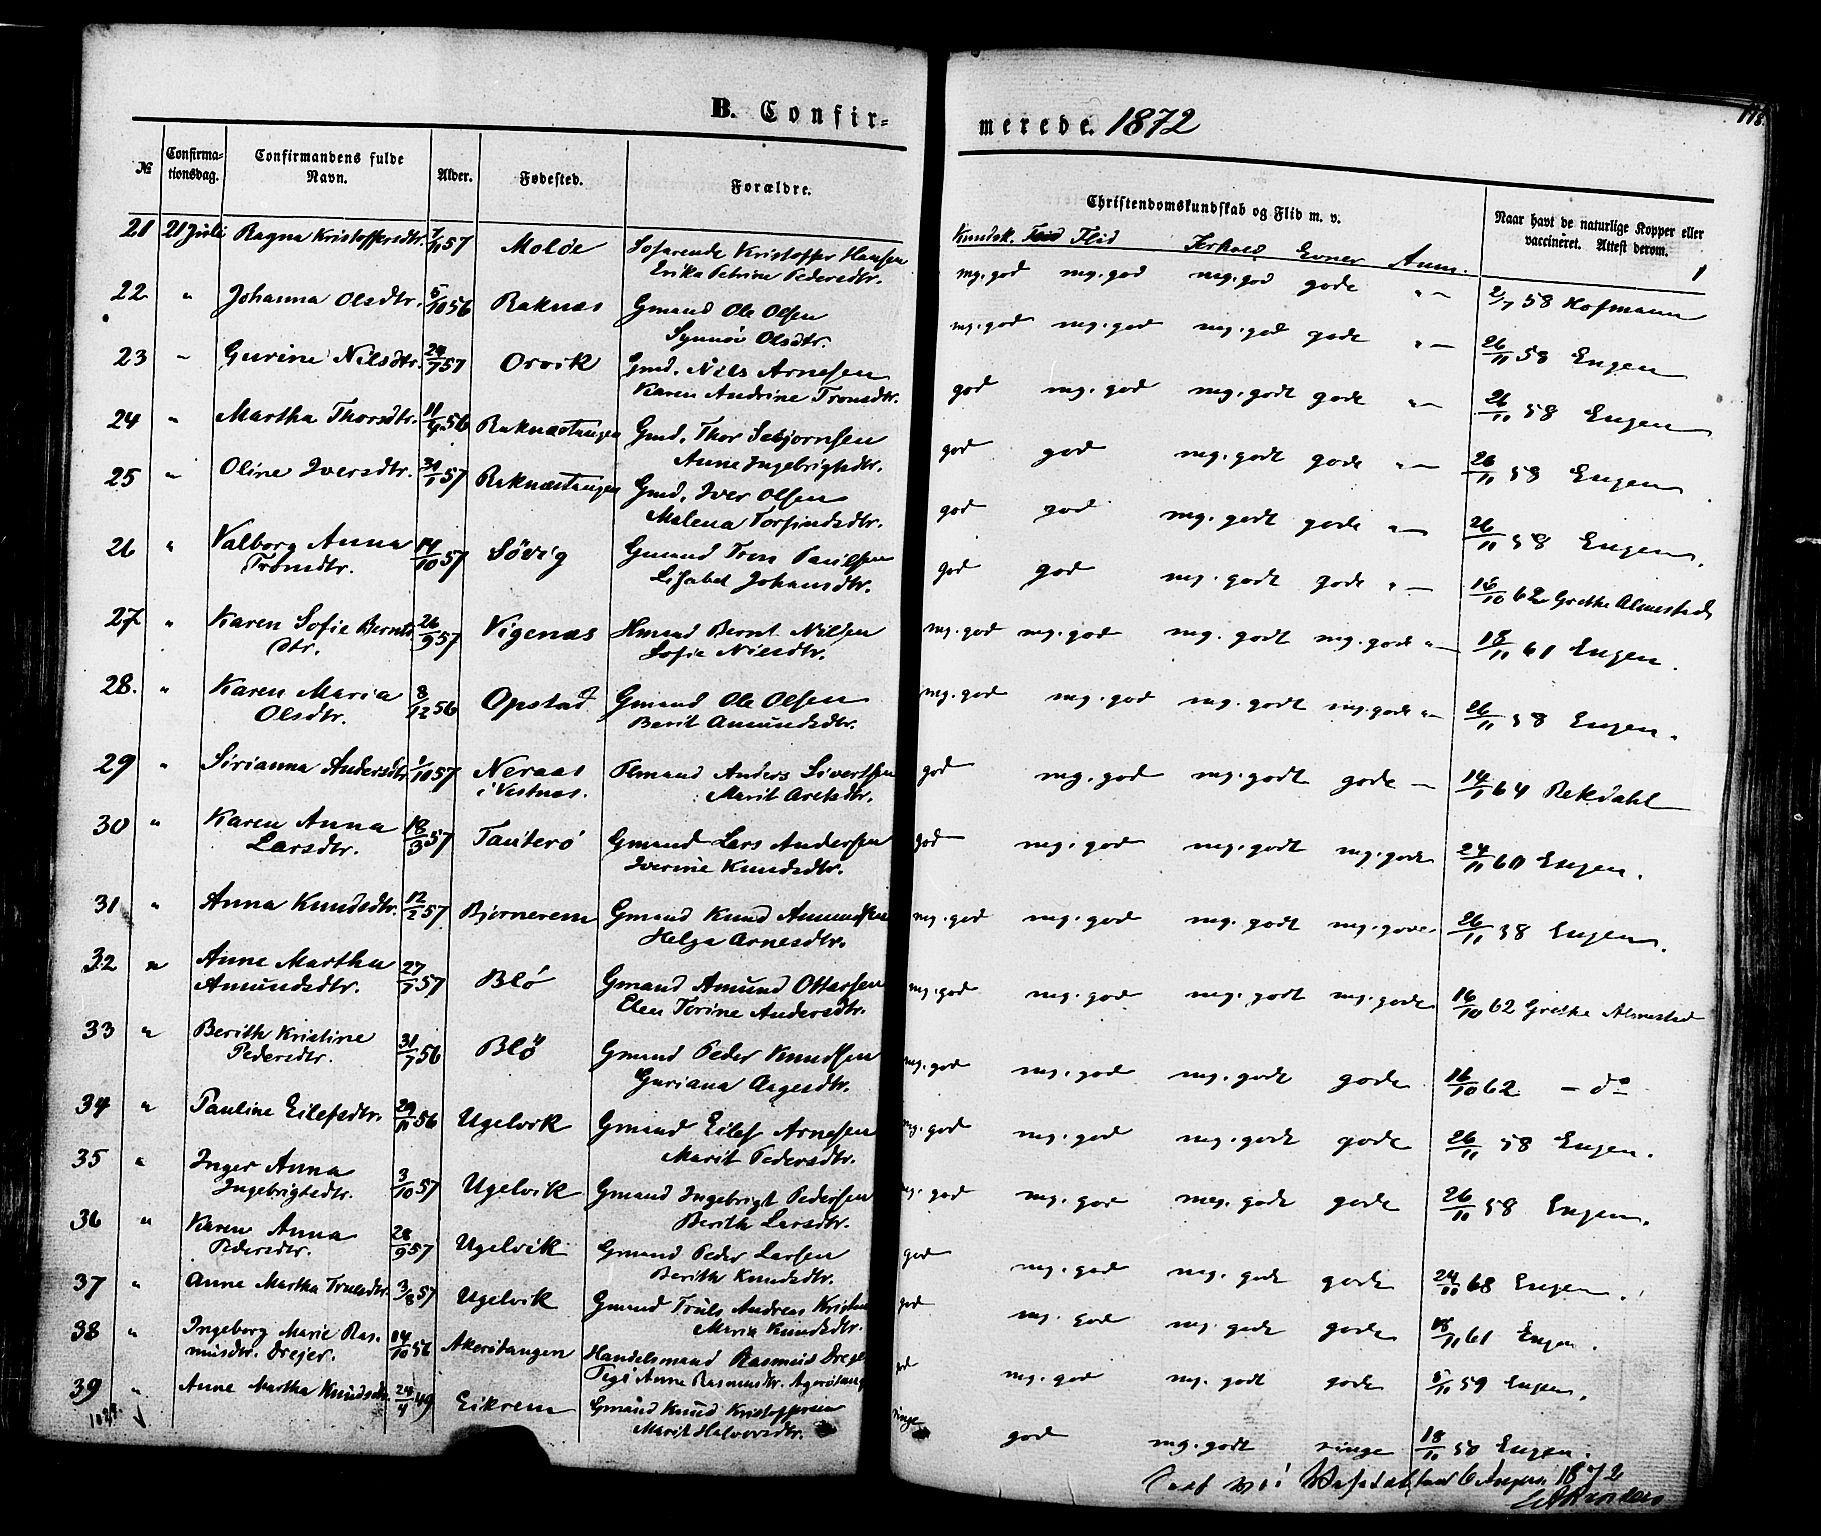 B. Confir-
merede. 1872
№
Confirma-
tionsdag.
Confirmandens fulde
Navn.
Alder.
Fødested.
Forældre.
Christendomskundskab og Flid m. v.
Naar havt de naturlige Kopper eller
vaccineret. Attest derom.
Kundsk. Flid Forhold Evner Anm.
21 21 Juli Ragna Kristoffersdtr. 57 Molde Søfarende Kristoffer Hansen
Erika Petrine Pedersdtr.
mg. god mg. god meg. god gode " — 2/7 58 Hofmann
22 " Johanna Olsdtr. 5/10 56 Raknæs Gmand Ole Olsen
Synnøi Olsdtr.
mg. god mg. god mg. god gode " — 26/11 58 Engen
23 " Gurine Nilsdtr. 57 Orvik Gmd. Nils Arnesen
Karen Andrine Tronsdtr.
god mg. god mg. godt gode " — 26/11 58 Engen
24 " Martha Thorsdtr. 56 Raknæstangen Gmd. Thor Sebjørnsen
Anne Ingebrigtsdtr.
god god mg. godt gode " — 26/11 58 Engen
25 " Oline Iversdtr. 57 Raknæstangen Gmd. Iver Olsen
Malena Torfindsdtr.
god god mg. godt gode " — 26/11 58 Engen.
26 " Valborg Anna
Tronsdtr. 14/10 57 Søvig Gmand Tron Paulsen
Lisabet Johansdtr.
god god mg. godt gode " — 16/10 62 Grethe Almestad
27 " Karen Sofie Bernts
dtr. 26/9 57 Vigenæs Hmand Bernt Nilsen
Sofie Nilsdtr.
mg. god mg. god mg. godt mg. gode " — 18/11 61 Engen.
28. " Karen Maria
Olsdtr. 8/12 56 Opstad Gmand Ole Olsen
Berit Amundsdtr.
mg. god mg. god mg. godt mg. gode " — 26/11 58 Engen.
29 " Sirianna Andersdtr. 1/10 57 Neraas
i Vestnæs. Plmand Anders Sivertsen
Marit Aretsdtr.
god mg. god mg. godt gode — 64 Rekdahl
30 " Karen Anna
Larsdtr. 18/3 57 Tauterö Gmand Lars Andersen
Iverine Knudsdtr.
god mg. god mg. godt mg. gode 24/11 60 Engen.
31 " Anna Knudsdtr. 12/2 57 Bjørnerem Gmand Knud Amundsen
Helga Arnesdtr.
mg. god mg. god mg. godt mg. gode 26/11 58 Engen.
32 " Anne Martha
Amundsdtr. 57 Blö Gmand Amund Ottarsen
Elen Torine Andersdtr.
mg. god mg. god mg. godt mg. gode 16/10 62 Grethe Almestad
33 " Berith Kristine
Pedersdtr. 31/7 56 Blö Gmand Peder Knudsen
Guriana Aagesdtr.
mg. god mg. god mg. gode gode 16/10 62 — do
34 " Pauline Eilefsdtr. 29/11 56 Ugelvik Gmand Eilef Arnesen
Marit Pedersdtr.
mg. god mg. god mg. gode gode 26/11 58 Engen.
35 " Inger Anna
Ingebrigtsdtr. 3/10 57 Ugelvik Gmand Ingebrigt Pedersen
Berith Larsdtr.
mg. god mg. god meg. gode gode 26/11 58 Engen.
36 " Karen Anna
Pedersdtr. 28/9 57 Ugelvik Gmand Peder Larsen
Berith Knudsdtr.
god mg. god mg. gode gode 24/11 68 Engen.
37 " Anne Martha Trulsdtr. 3/8 57 Ugelvik Gmand Truls Andreas Kristen
Marin Knudsdtr.
god mg. god mg. gode gode 18/11 61 Engen.
38 " Ingeborg Marie Ras-
musdtr. Drejer. 14/10 56 Akerötangen Handelsmand Rasmus Drejer
Pige Anne Rasmusdtr. Agerötang
god mg. god mg. godt gode 5/11 59 Engen.
39 " Anne Martha Knudsdtr. 24/4 49 Eikrem Gmand Knud Kristoffersen
Marit Halvorsdtr.
ringe god mg. godt ringe 18/11 50 Engen.
1872